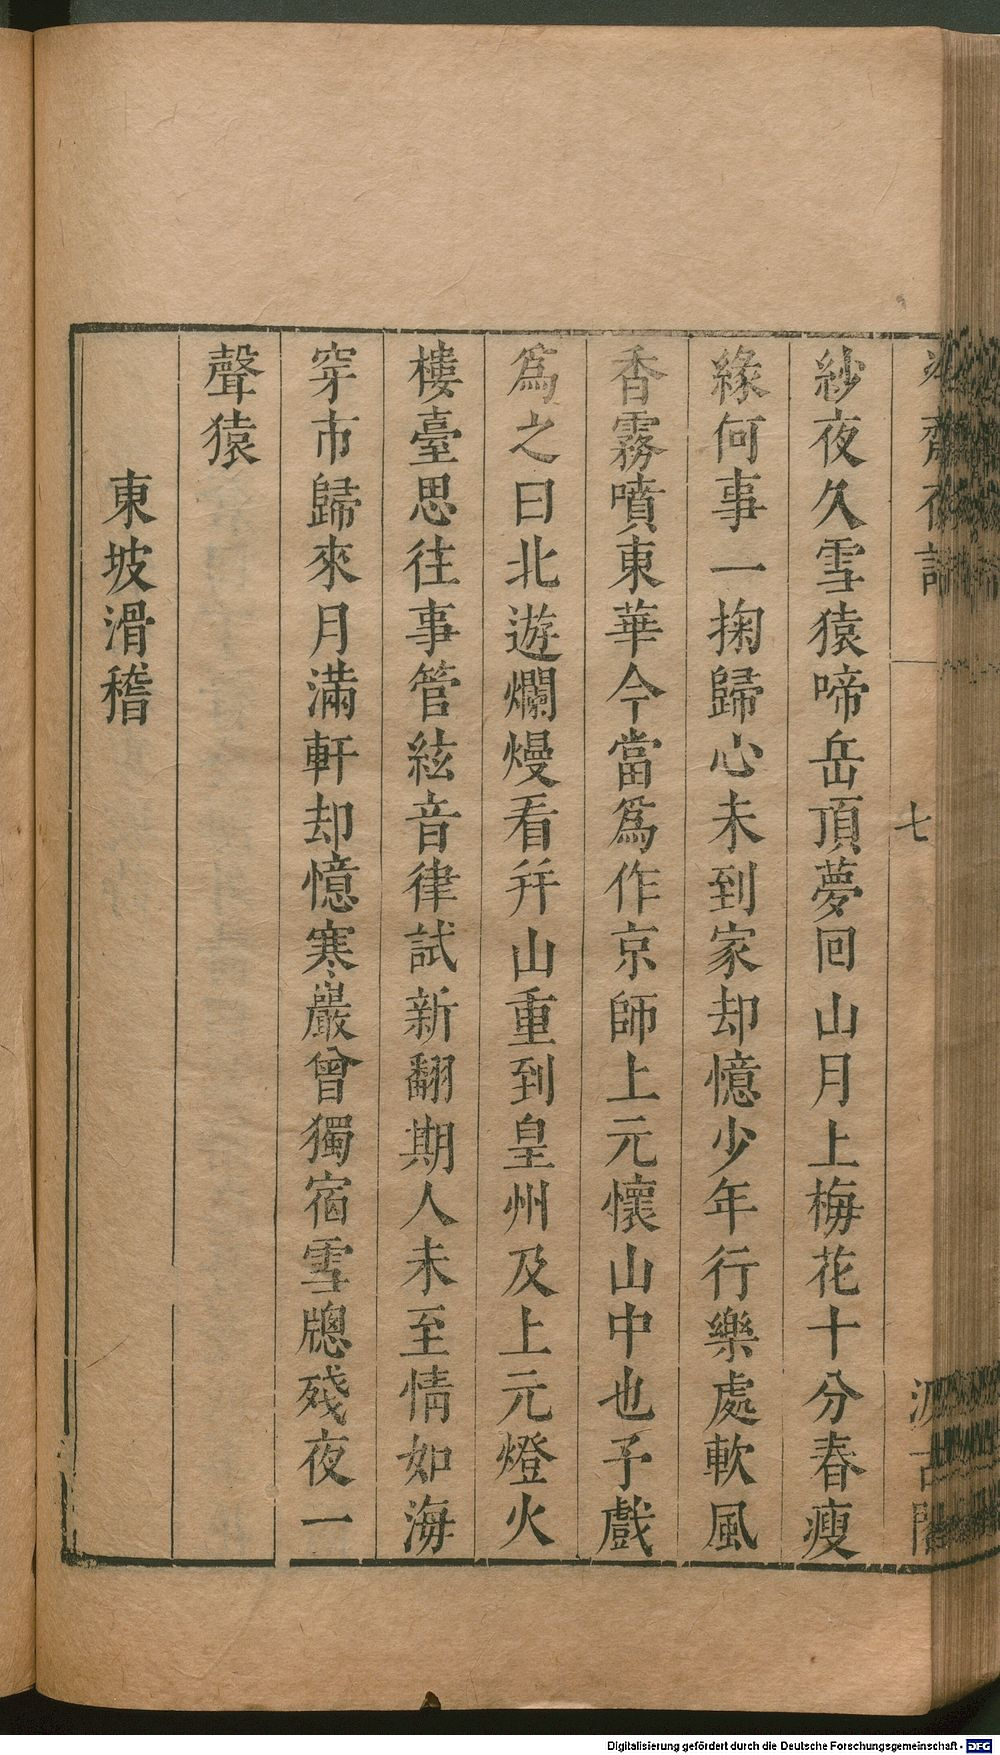 齋夜話
七
汲古閣
紗夜久雪猿啼岳頂夢回山月上梅花十分春瘦
緣何事一掬歸心未到家却憶少年行樂處軟風
香霧噴東華今當爲作京師上元懷山中也予戲
爲之曰北遊爛熳看并山重到皇州及上元燈火
樓臺思往事管絃音律試新翻期人未至情如海
穿市歸來月滿軒却憶寒巖曾獨宿雪牕殘夜一
聲猿
東坡滑稽
Digitalisierung gefördert durch die Deutsche Forschungsgemeinschaft - DFG